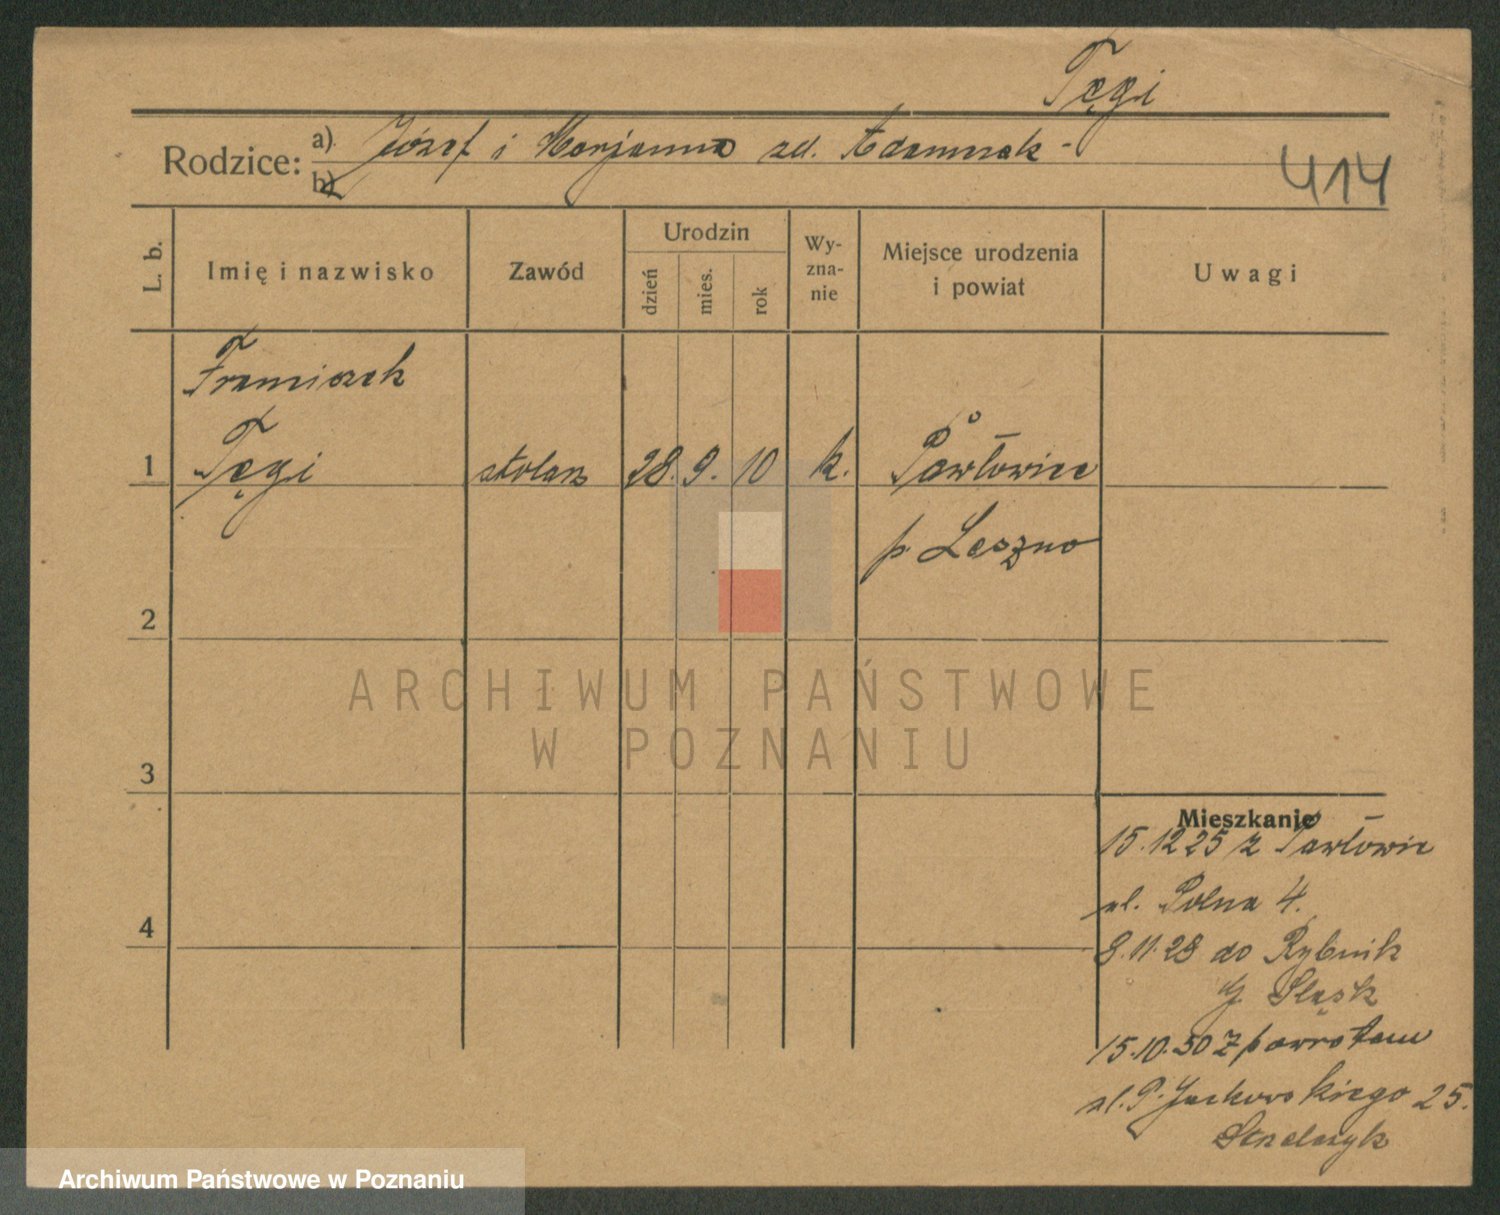 Tęgi
Rodzice: a) Józef i Marjanna zd. Adamczak -
b)
414
L. b.
Imię i nazwisko
Zawód
Urodzin
dzień
mies.
rok
Wy-
zna-
nie
Miejsce urodzenia
i powiat
Uwagi
Franciszek
1 Tęgi stolarz 28. 9. 10 k. Pawłowice
p. Leszno
2
3
4
Mieszkanie
15.12 25 z Pawłowic
ul. Polna 4.
8.11.28 do Rybnik
G Śląsk
15.10.30 z powrotem
ul. P. Jackowskiego 25.
Strzelczyk
ARCHIWUM PAŃSTWOWE
W POZNANIU
Archiwum Państwowe w Poznaniu